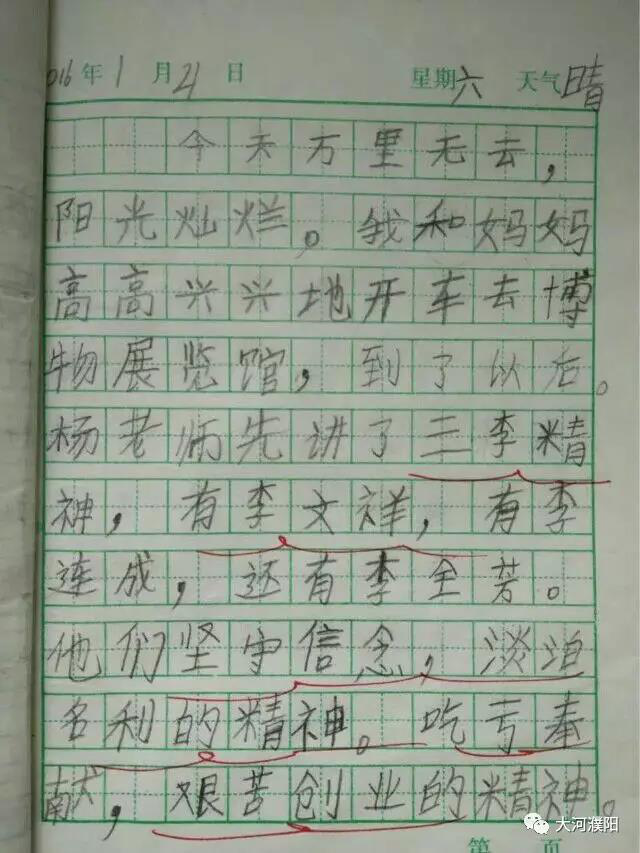 016年1月21日 星期六 天气晴
今天万里无去，
阳光灿烂。我和妈妈
高高兴兴地开车去博
物展览馆，到了以后。
杨老师先讲了三李精
神，有李文祥，有李
连成，还有李全芳。
他们坚守信念，淡泊
名利的精神。吃亏奉
献，艰苦创业的精神。
第 页
大河濮阳